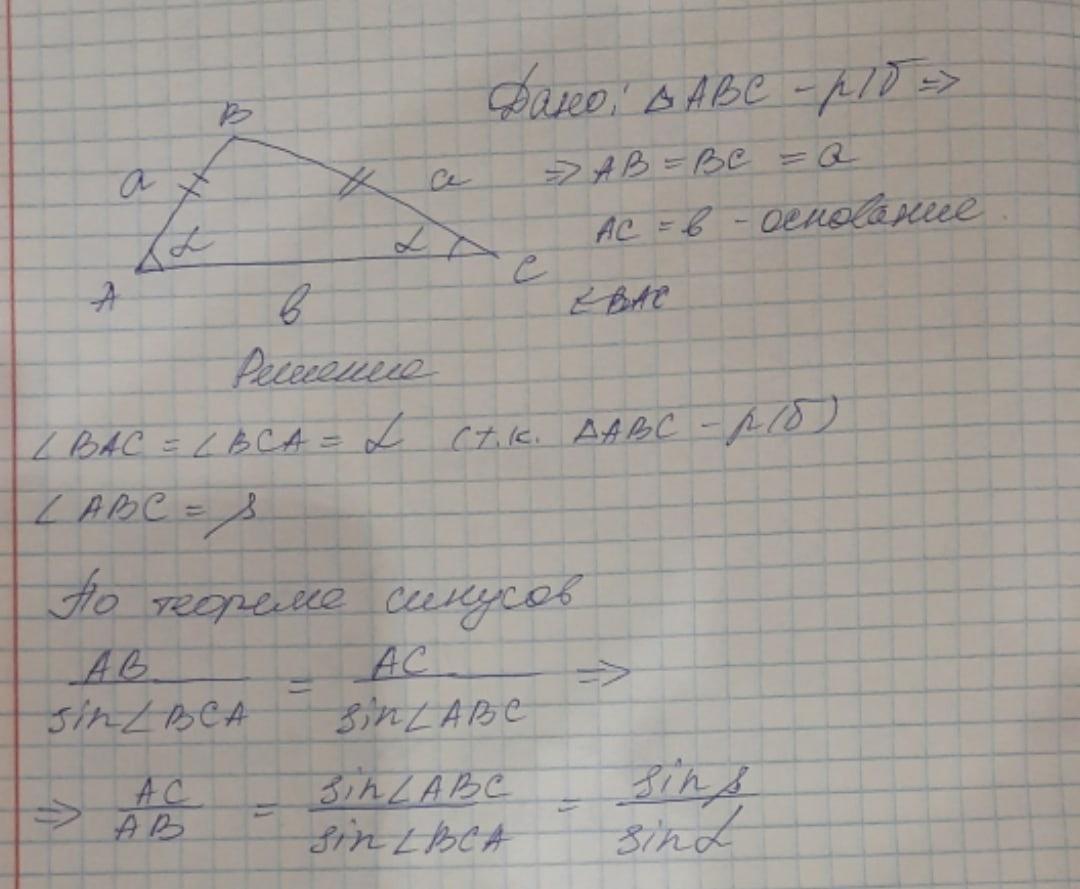 Дано: △ABC - р/б ⇒
⇒ AB = BC = a
AC = в - основание.
∠BAC
B
a
a
α
α
A
C
в
Решение
∠BAC = ∠BCA = α (т.к. △ABC - р/б)
∠ABC = β
По теореме синусов
AB / sin∠BCA = AC / sin∠ABC ⇒
⇒ AC / AB = sin∠ABC / sin∠BCA = sinβ / sinα